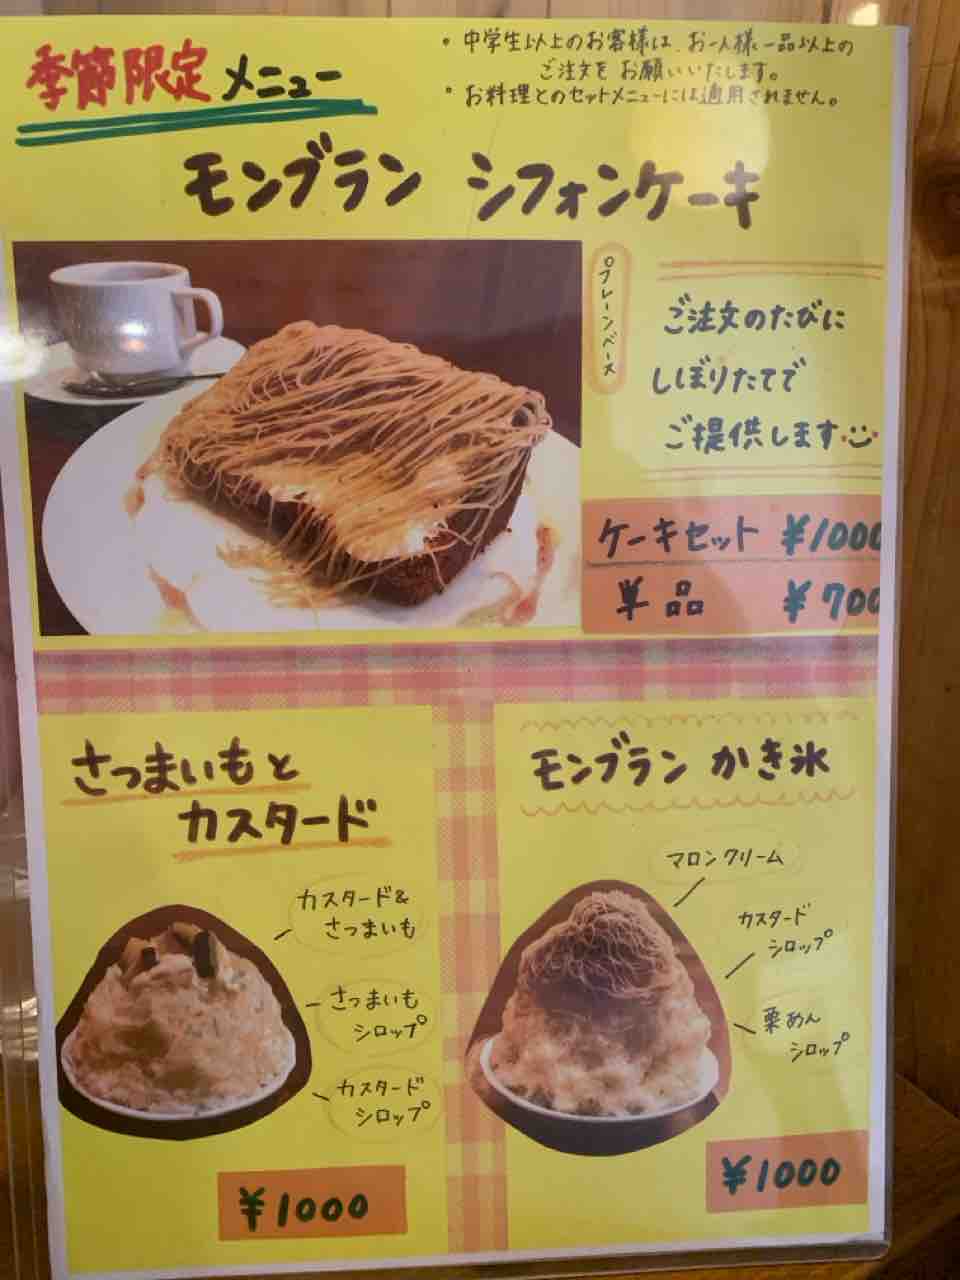 季節限定 メニュー
。中学生以上のお客様は、お一人様一品以上の
ご注文を お願いいたします。
。お料理とのセットメニューには適用されません。
モンブラン シフォンケーキ
プレーンベース
ご注文のたびに
しぼりたてで
ご提供します
ケーキセット ¥1000
単品 ¥700
さつまいもと
カスタード
カスタード&
さつまいも
さつまいも
シロップ
カスタード
シロップ
¥1000
モンブラン かき氷
マロンクリーム
カスタード
シロップ
栗あん
シロップ
¥1000